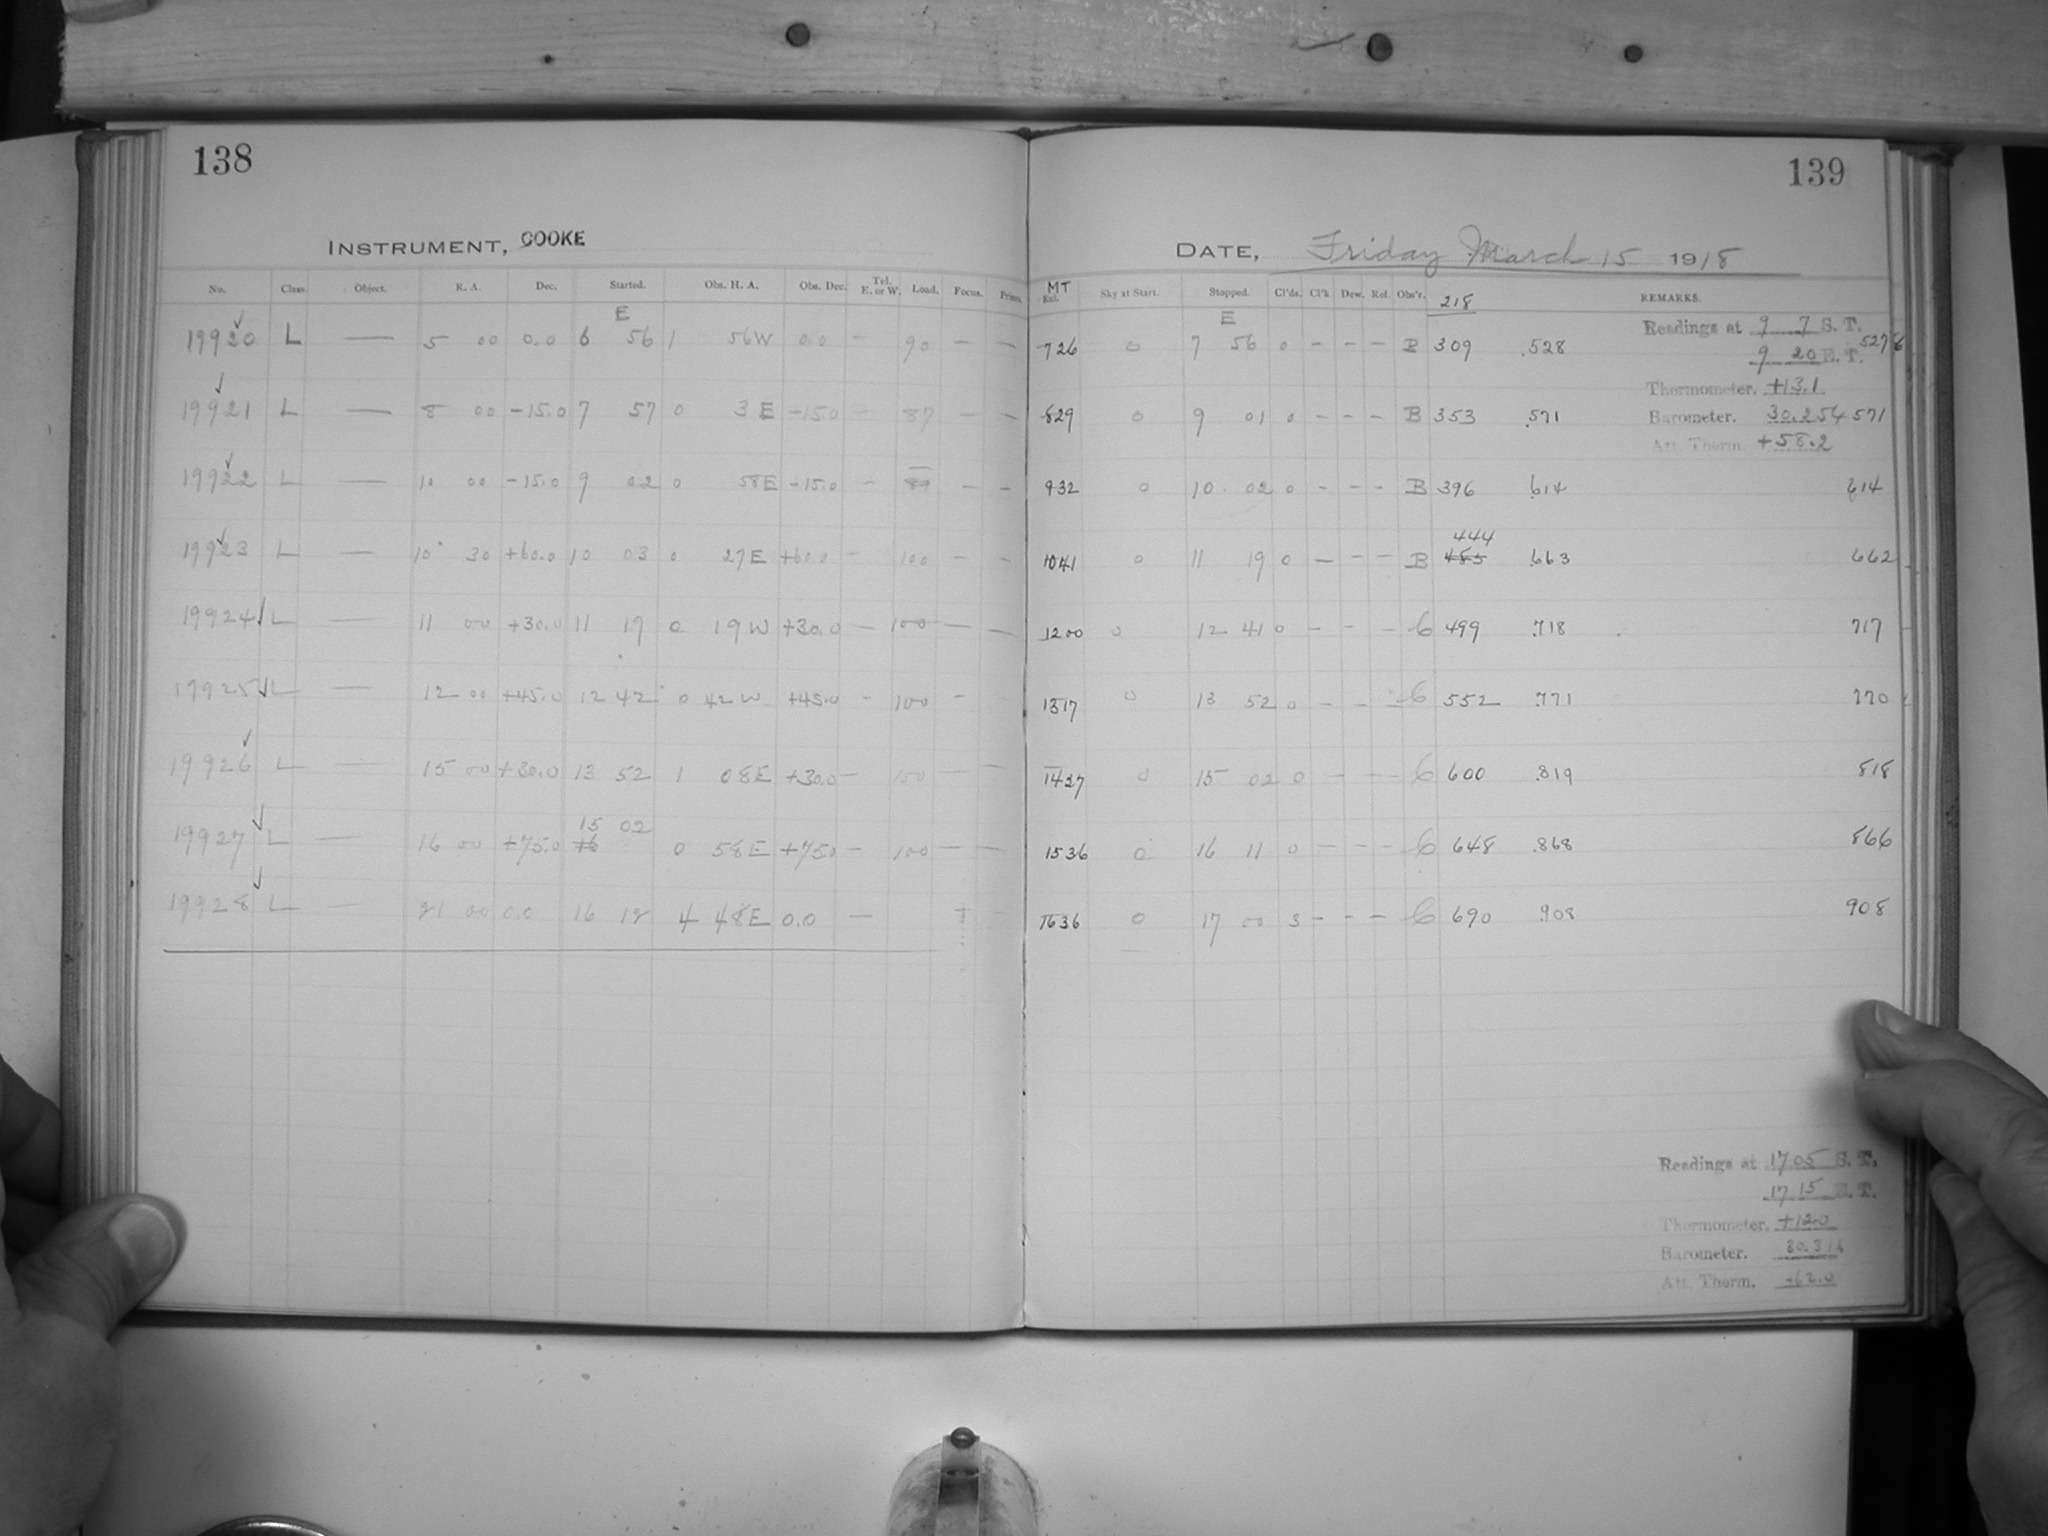 138
INSTRUMENT, COOKE
No. Class. Object. R. A. Dec. Started. Obs. H. A. Obs. Dec. Tel. E. or W. Load. Focus. Prisms.
E
19920 L — 5 00 0.0 6 56 1 56W 0.0 - 90 — —
19921 L — 8 00 -15.0 7 57 0 3E -15.0 - 87 — —
19922 L — 10 00 -15.0 9 02 0 58E -15.0 - — —
19923 L — 10 30 +60.0 10 03 0 27E +60.0 - 100 — —
19924 L — 11 00 +30.0 11 19 0 19W +30.0 — 100 — —
19925 L — 12 00 +45.0 12 42 0 42W +45.0 - 100 - -
19926 L — 15 00 +30.0 13 52 1 08E +30.0 — 100 — —
15 02
19927 L — 16 00 +75.0 16 0 58E +75.0 — 100 — —
19928 L — 21 00 0.0 16 12 4 48E 0.0 —
139
DATE, Friday March 15 1918
MT
Exl. Sky at Start. Stopped. Cl'ds. Cl'k Dew. Ref. Obs'r. 218 REMARKS.
E
726 0 7 56 0 - - - B 309 .528
Readings at 9 7 S. T.
9 20 E. T. 527
Thermometer. +13.1
829 0 9 01 0 - - - B 353 .571
Barometer. 30.254 571
Att. Therm. +58.2
932 0 10 02 0 - - - B 396 .614 614
444
1041 0 11 19 0 — - - B 485 .663 662
1200 0 12 41 0 - - - C 499 .718 717
1317 0 13 52 0 - - - C 552 .771 770
1427 0 15 02 0 - - - C 600 .819 818
1536 0 16 11 0 - - - C 648 .868 866
1636 0 17 00 3 - - - C 690 .908 908
Readings at 17 05 S. T.
17 15 E. T.
Thermometer. +12.0
Barometer. 30.314
Att. Therm. +62.0